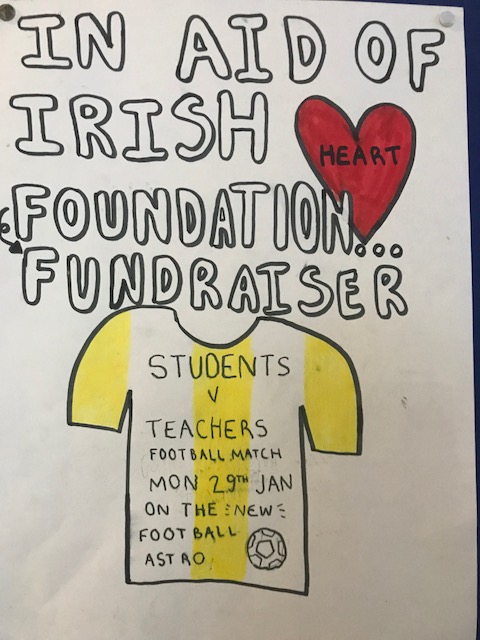 IN AID OF
IRISH HEART
FOUNDATION...
FUNDRAISER
STUDENTS
V
TEACHERS
FOOTBALL MATCH
MON 29TH JAN
ON THE NEW
FOOTBALL
ASTRO